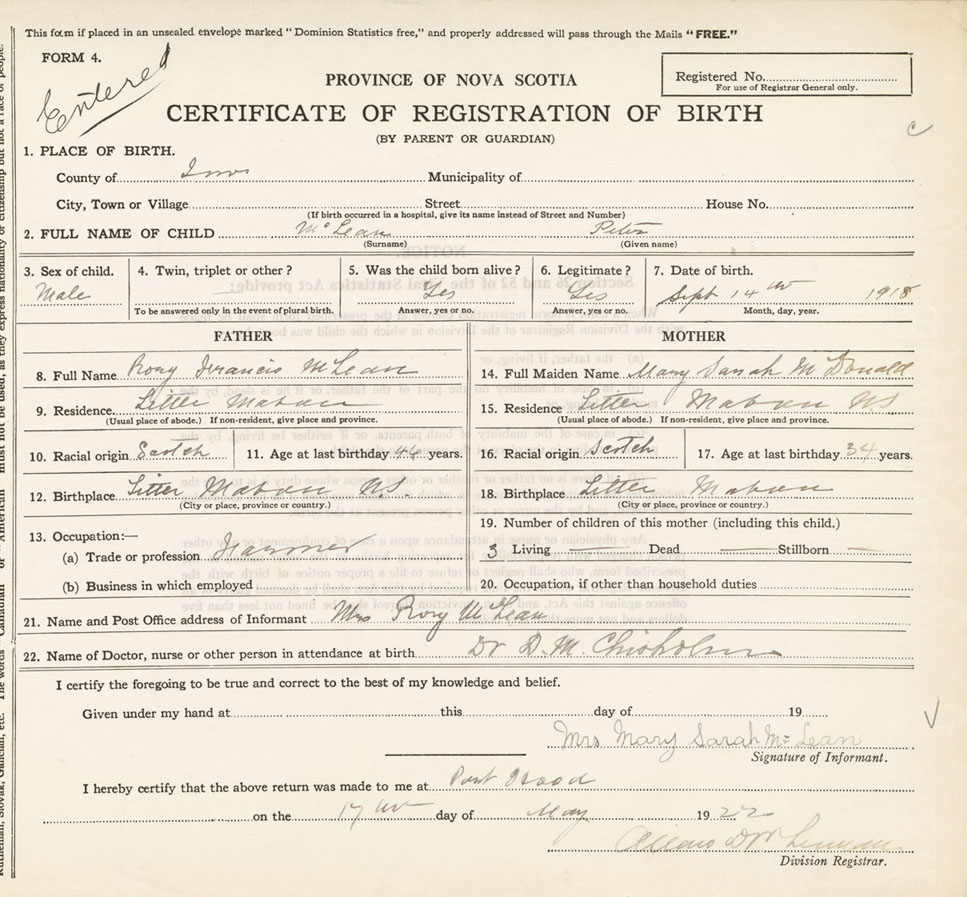 This form if placed in an unsealed envelope marked "Dominion Statistics free," and properly addressed will pass through the Mails "FREE."
FORM 4.
Entered
PROVINCE OF NOVA SCOTIA
Registered No.
For use of Registrar General only.
CERTIFICATE OF REGISTRATION OF BIRTH
(BY PARENT OR GUARDIAN)
1. PLACE OF BIRTH.
County of Inv Municipality of
City, Town or Village Street House No.
(If birth occurred in a hospital, give its name instead of Street and Number)
2. FULL NAME OF CHILD McLean Peter
(Surname) (Given name)
3. Sex of child. 4. Twin, triplet or other? 5. Was the child born alive? 6. Legitimate? 7. Date of birth.
Male Yes Yes Sept 14th 1918
To be answered only in the event of plural birth. Answer, yes or no. Answer, yes or no. Month, day, year.
FATHER MOTHER
8. Full Name Rory Francis McLean 14. Full Maiden Name Mary Sarah McDonald
9. Residence. Little Mabou 15. Residence Little Mabou NS
(Usual place of abode.) If non-resident, give place and province. (Usual place of abode.) If non-resident, give place and province.
10. Racial origin Scotch 11. Age at last birthday 46 years. 16. Racial origin Scotch 17. Age at last birthday 34 years.
12. Birthplace Little Mabou NS. 18. Birthplace Little Mabou
(City or place, province or country.) (City or place, province or country.)
13. Occupation:— 19. Number of children of this mother (including this child.)
(a) Trade or profession Farmer 3 Living — Dead — Stillborn —
(b) Business in which employed 20. Occupation, if other than household duties
21. Name and Post Office address of Informant Mrs Rory McLean
22. Name of Doctor, nurse or other person in attendance at birth Dr D. M. Chisholm
I certify the foregoing to be true and correct to the best of my knowledge and belief.
Given under my hand at this day of 19
Mrs Mary Sarah McLean
Signature of Informant.
I hereby certify that the above return was made to me at Port Hood
on the 17th day of May 1922
Division Registrar.